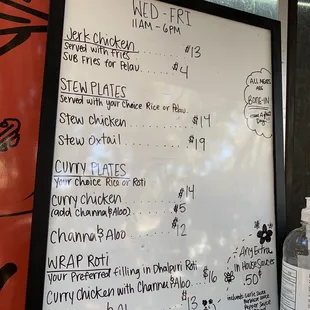 WED-FRI
11AM-6PM
Jerk Chicken $13
Served with Fries
Sub Fries for Pelau $4
STEW PLATES
Served with your Choice Rice or Pelau
Stew chicken $14
Stew Oxtail $19
CURRY PLATES
Your choice Rice or Roti
Curry chicken $14
(add Channa & Aloo) $5
Channa & Aloo $12
WRAP Roti
Your Preferred filling in Dhalpuri Roti
Curry Chicken with Channa & Aloo $16
$13
ALL MEATS
ARE
BONE-IN
Any Extra
In House Sauces
.50¢
includes Garlic Sauce
Pepper Sauce